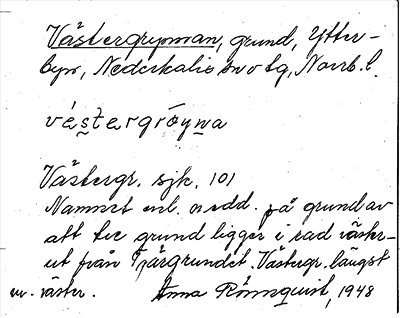 Västergrynnan, grund, Ytter-
byn, Nederkalix sn o tg, Norrb. l.
véstergröyna
Västergr. sjk. 101
Namnet enl. medd. på grund av
att tre grund ligger i rad väster-
ut från Tjärgrundet. Västergr. längst
väster. Anna Rönnquist, 1948